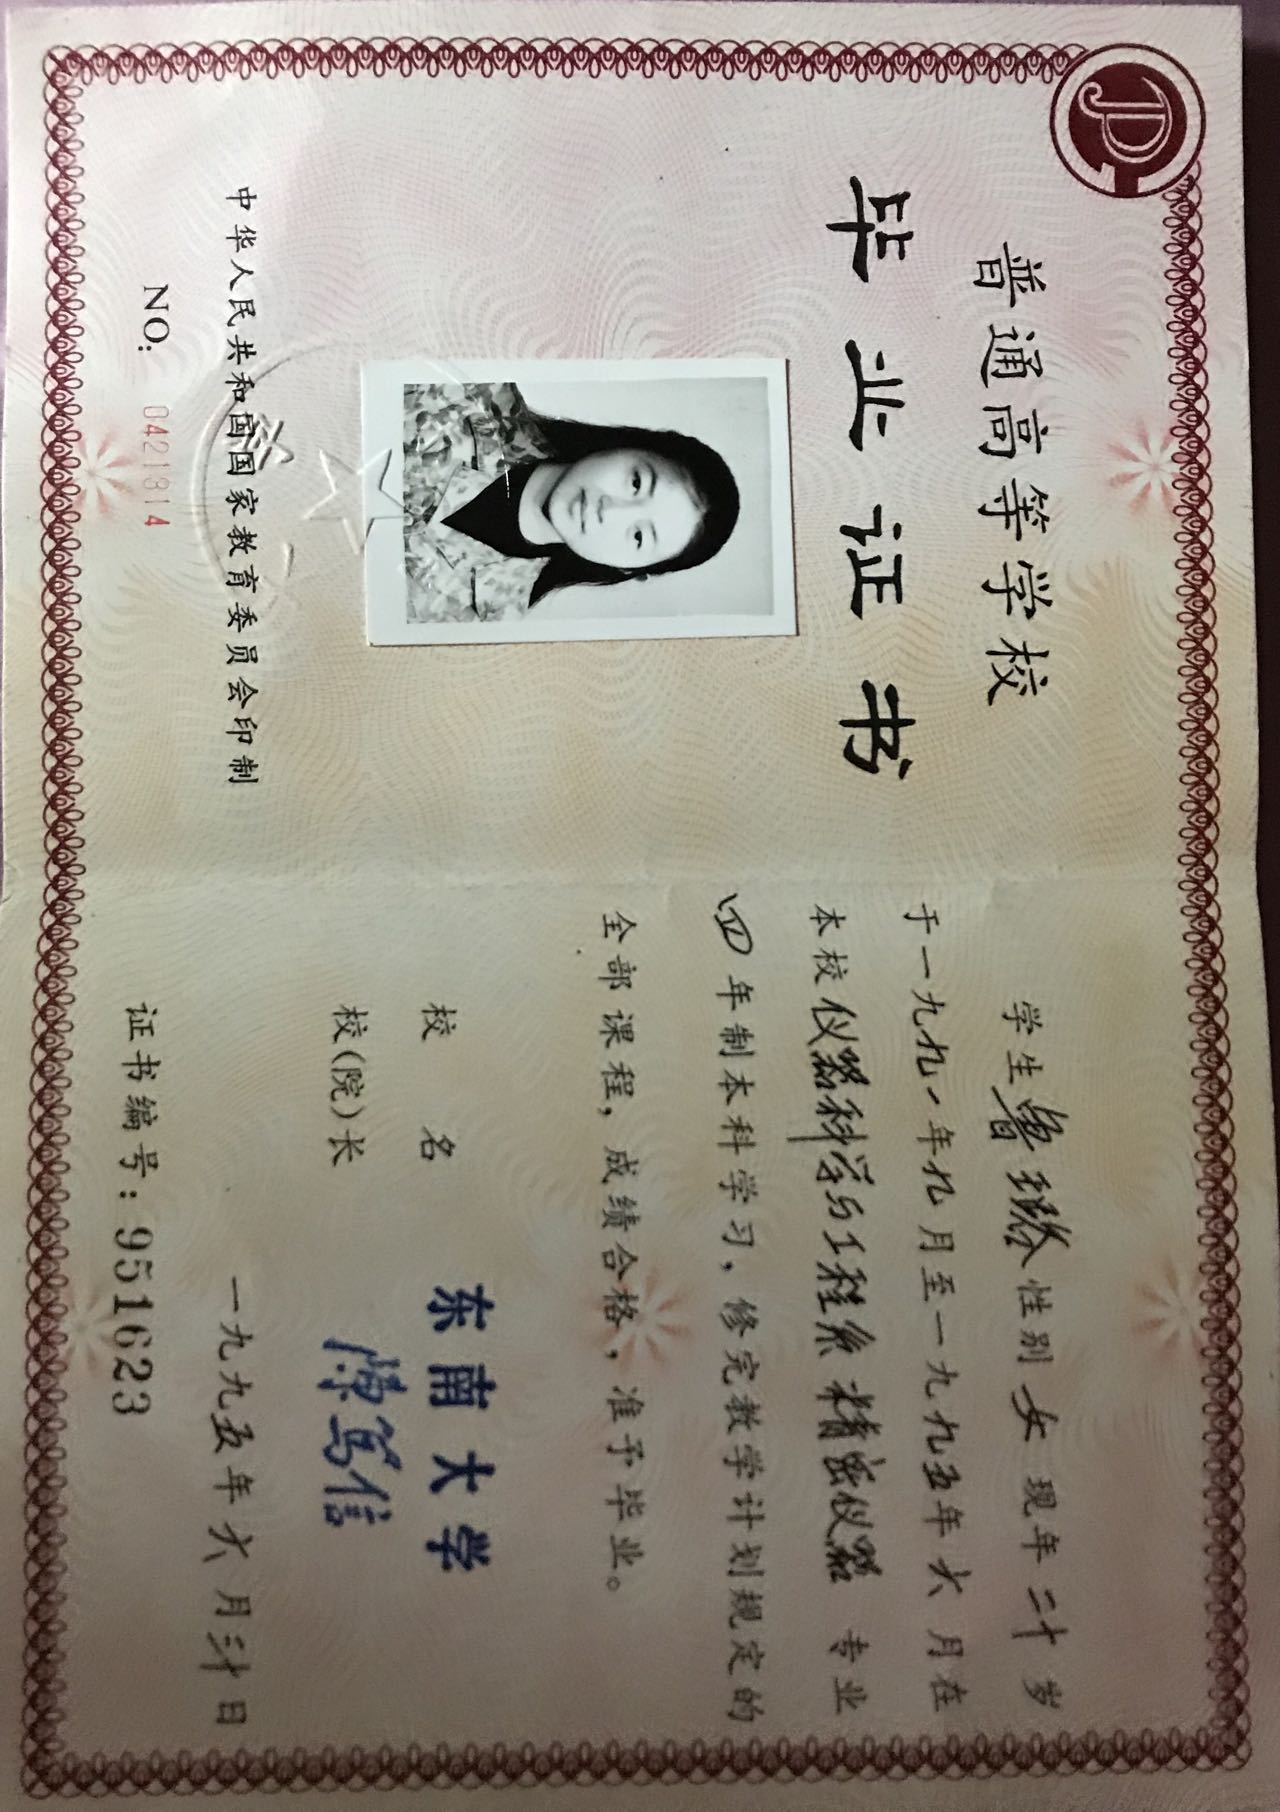 普通高等学校
毕业证书
中华人民共和国国家教育委员会印制
NO: 0421314
学生鲁璐性别女现年二十岁
于一九九一年九月至一九九五年六月在
本校仪器科学与工程系精密仪器专业
四年制本科学习，修完教学计划规定的
全部课程，成绩合格，准予毕业。
校名 东南大学
校(院)长 陈笃信
一九九五年六月三十日
证书编号：951623